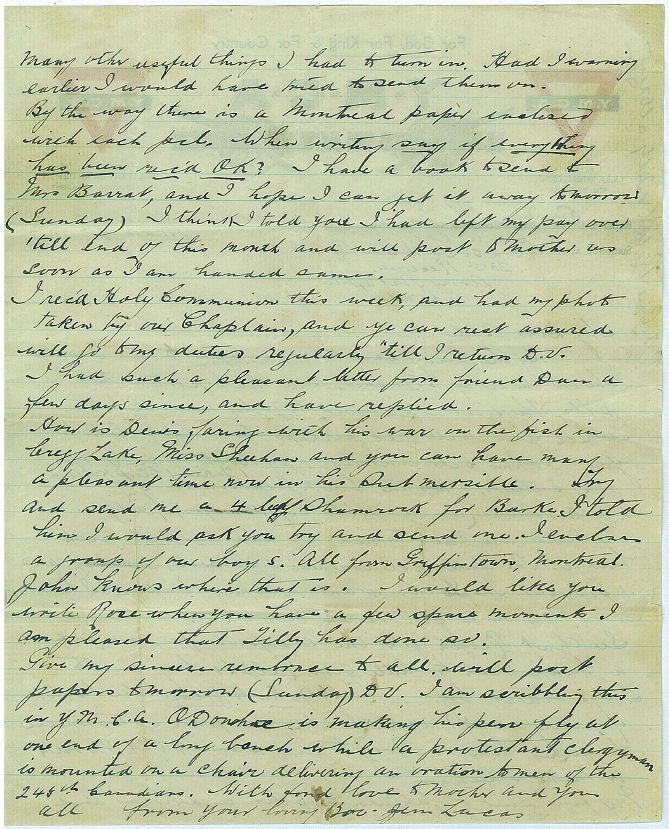 many other useful things I had to turn in. Had I warning
earlier I would have tried to send them on.
By the way there is a Montreal paper enclosed
with each pcl. When writing say if everything
has been rec'd OK? I have a book to send to
Mrs Barrat, and I hope I can get it away tomorrow
(Sunday) I think I told you I had left my pay over
'till end of this month and will post to Mother as
soon as I am handed same.
I rec'd Holy Communion this week, and had my photo
taken by our Chaplain, and ye can rest assured
will go to my duties regularly 'till I return D.V.
I had such a pleasant letter from friend Dan a
few days since, and have replied.
How is Denis faring with his war on the fish in
Cregg Lake, Miss Sheehan and you can have many
a pleasant time now in his Submersible. Try
and send me a 4 leaf Shamrock for Burke, I told
him I would ask you try and send one. I enclose
a group of our boys. All from Griffintown, Montreal.
John knows where that is. I would like you
write Rose when you have a few spare moments I
am pleased that Tilly has done so.
Give my sincere rembrance to all, will post
papers tomorrow (Sunday) D.V. I am scribbling this
in Y.M.C.A. O'Donohue is making his pen fly at
one end of a long bench while a protestant clergyman
is mounted on a chair delivering an oration to men of the
248th Canadians. With fond love to Mother and you
all from your loving Bro. Jim Lucas
For God For King & For Country